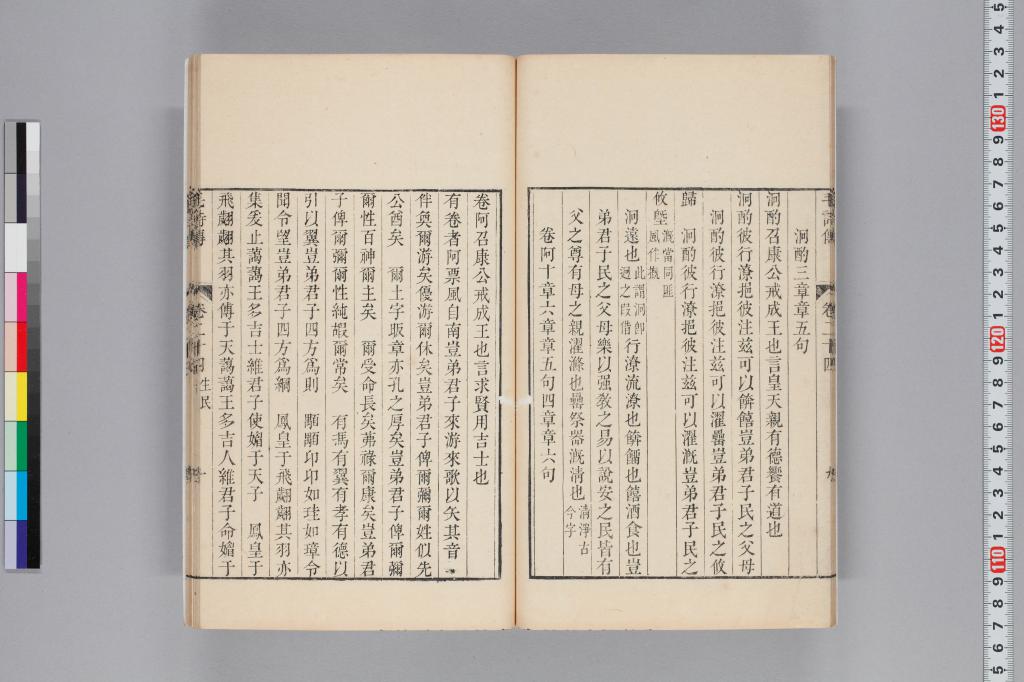 泂酌三章章五句
泂酌召康公戒成王也言皇天親有德饗有道也
泂酌彼行潦挹彼注茲可以餴饎豈弟君子民之父母
泂酌彼行潦挹彼注茲可以濯罍豈弟君子民之攸
歸　泂酌彼行潦挹彼注茲可以濯溉豈弟君子民之
攸墍
溉當同匪
風作摡
泂遠也
此謂泂卽
迥之叚借
行潦流潦也餴餾也饎酒食也豈
弟君子民之父母樂以强敎之易以說安之民皆有
父之尊有母之親濯滌也罍祭器溉淸也
淸淨古
今字
卷阿十章六章章五句四章章六句
卷阿召康公戒成王也言求賢用吉士也
有卷者阿票風自南豈弟君子來游來歌以矢其音
伴奐爾游矣優游爾休矣豈弟君子俾爾彌爾姓似先
公酋矣　爾土宇昄章亦孔之厚矣豈弟君子俾爾彌
爾性百神爾主矣　爾受命長矣茀祿爾康矣豈弟君
子俾爾彌爾性純嘏爾常矣　有馮有翼有孝有德以
引以翼豈弟君子四方爲則　顒顒卬卬如珪如璋令
聞令望豈弟君子四方爲綱　鳳皇于飛翽翽其羽亦
集爰止藹藹王多吉士維君子使媚于天子　鳳皇于
飛翽翽其羽亦傅于天藹藹王多吉人維君子命媚于
卷二十四
生民